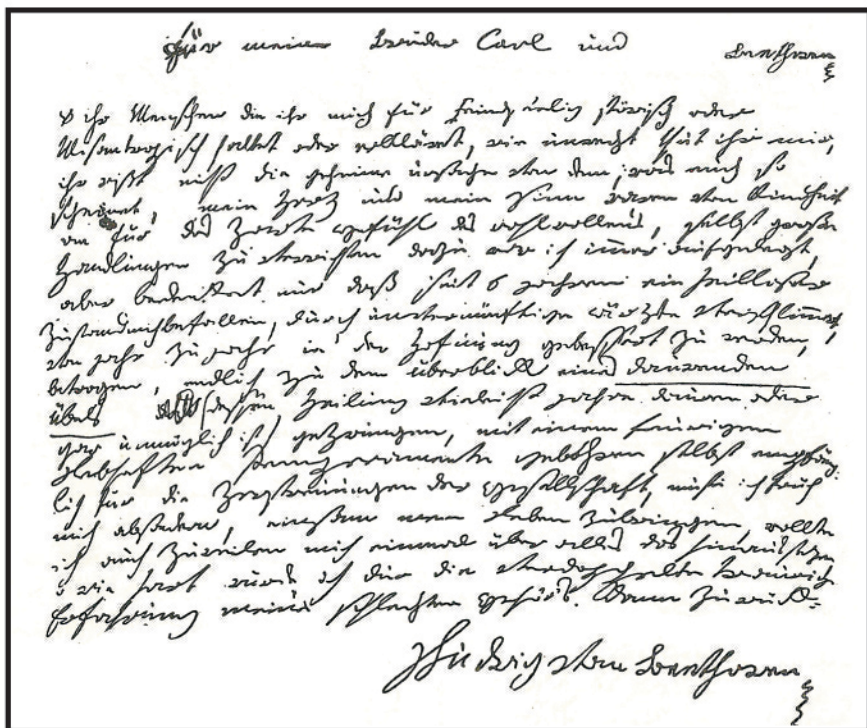 für meine Brüder Carl und Beethoven
o ihr Menschen die ihr mich für Feindseelig störisch oder
Misantropisch haltet oder erkläret, wie unrecht thut ihr mir,
ihr wißt nicht die geheime urßache von dem; was euch so
scheinet, mein Herz und mein Sinn waren von Kindheit
an für das Zarte Gefühl des wohlwollens, selbst große
Handlungen zu verrichten dazu war ich immer aufgelegt,
aber bedenket nur daß seit 6 jahren ein heilloser
Zustand mich befallen, durch unvernünftige ärzte verschlimmert,
von jahr zu jahr in der Hofnung gebessert zu werden,
betrogen, endlich zu dem überblick eines daurenden
übels dessen Heilung vieleicht jahre dauren oder
gar unmöglich ist, gezwungen, mit einem feurigen
Lebhaften Temperamente gebohren selbst empfäng-
lich für die Zerstreuungen der Gesellschaft, muste ich früh
mich absondern, einsam mein Leben zubringen, wollte
ich auch zuweilen mich einmal über alles das hinaussezen
o wie hart wurde ich dur die verdoppelte traurige
Erfahrung meines schlechten Gehör's dann zurück-
Ludwig van Beethoven